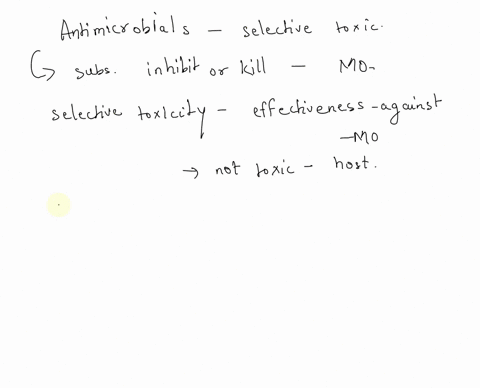 Antimicrobials – selective toxic.
↳ subs. inhibit or kill – MO-
selective toxicity – effectiveness-against
–MO
→ not toxic – host.